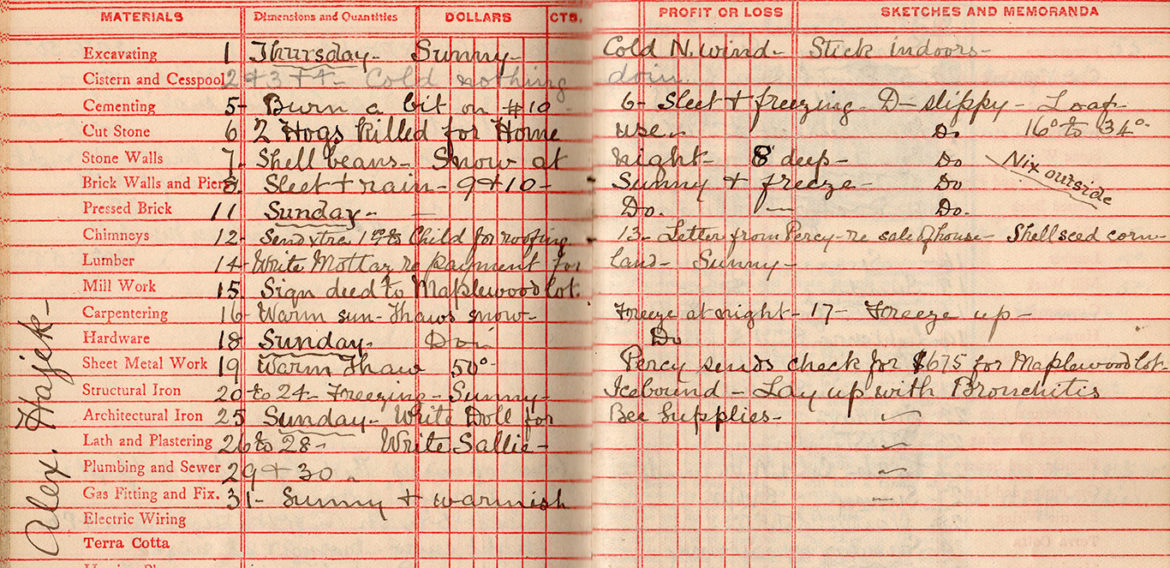 MATERIALS Dimensions and Quantities DOLLARS CTS. PROFIT OR LOSS SKETCHES AND MEMORANDA
Excavating 1 Thursday - Sunny - Cold N. wind - Stick indoors -
Cistern and Cesspool 2 + 3 + 4 - Cold nothing doin.
Cementing 5 - Burn a bit on #10 6 - Sleet + freezing - D - slippy - Loaf
Cut Stone 6 2 Hogs killed for Home use - Do 16° to 34° -
Stone Walls 7 - Shell beans - Snow at night - 8 deep - Do Nix outside
Brick Walls and Piers 8. Sleet + rain - 9 + 10 - Sunny + freeze - Do
Pressed Brick 11 Sunday - - Do. - Do.
Chimneys 12 - Send xtra to Child for roofing 13 - Letter from Percy - re sale of house - Shell seed corn -
Lumber 14 - Write Mottaz re payment for land - Sunny -
Mill Work 15. Sign deed to Maplewood lot.
Carpentering 16 - Warm sun - Thaws snow - Freeze at night - 17 - Freeze up -
Hardware 18 Sunday - Doin Do
Sheet Metal Work 19 Warm Thaw 50° - Percy sends check for $675 for Maplewood lot -
Structural Iron 20 to 24 - Freezing - Sunny - Icebound - Lay up with Bronchitis
Architectural Iron 25 Sunday - Write Doll for Bee Supplies -
Lath and Plastering 26 to 28 - Write Sallie -
Plumbing and Sewer 29 + 30
Gas Fitting and Fix. 31 - Sunny + warmish
Electric Wiring
Terra Cotta
Alex. Hajek -